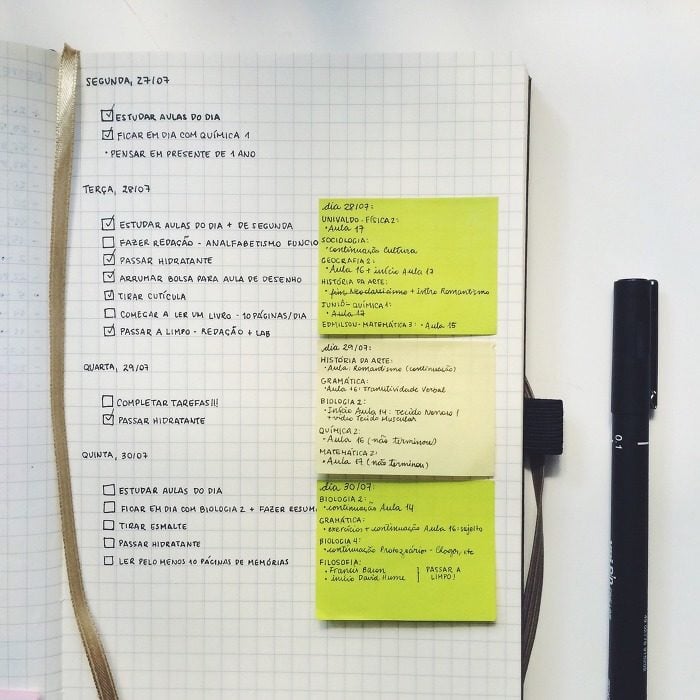 SEGUNDA, 27/07
ESTUDAR AULAS DO DIA
FICAR EM DIA COM QUÍMICA 1
• PENSAR EM PRESENTE DE 1 ANO
TERÇA, 28/07
ESTUDAR AULAS DO DIA + DE SEGUNDA
FAZER REDAÇÃO - ANALFABETISMO FUNCIO
PASSAR HIDRATANTE
ARRUMAR BOLSA PARA AULA DE DESENHO
TIRAR CUTÍCULA
COMEÇAR A LER UM LIVRO - 10 PÁGINAS/DIA
PASSAR A LIMPO - REDAÇÃO + LAB
QUARTA, 29/07
COMPLETAR TAREFAS!!!
PASSAR HIDRATANTE
QUINTA, 30/07
ESTUDAR AULAS DO DIA
FICAR EM DIA COM BIOLOGIA 2 + FAZER RESUM
TIRAR ESMALTE
PASSAR HIDRATANTE
LER PELO MENOS 10 PÁGINAS DE MEMÓRIAS
dia 28/07:
UNIVALDO - FÍSICA 2:
• Aula 17
SOCIOLOGIA:
• continuação Cultura
GEOGRAFIA 2:
• Aula 16 + início Aula 17
HISTÓRIA DA ARTE:
• fim Neoclassicismo + intro Romantismo
JUNIÔ - QUÍMICA 1:
• Aula 17
EDMILSON - MATEMÁTICA 3: • Aula 15
dia 29/07:
HISTÓRIA DA ARTE:
• Aula: Romantismo (continuação)
GRAMÁTICA:
• Aula 16: Transitividade Verbal
BIOLOGIA 2:
• Início Aula 14: Tecido Nervoso /
+ vídeo Tecido Muscular
QUÍMICA 2:
• Aula 16 (não terminou)
MATEMÁTICA 2:
• Aula 17 (não terminou)
dia 30/07:
BIOLOGIA 2:
• continuação Aula 14
GRAMÁTICA:
• exercícios + continuação Aula 16: sujeito
BIOLOGIA 4:
• continuação Protozoários - Chagas, etc
FILOSOFIA:
• Francis Bacon
• início David Hume
PASSAR A
LIMPO!
0.1